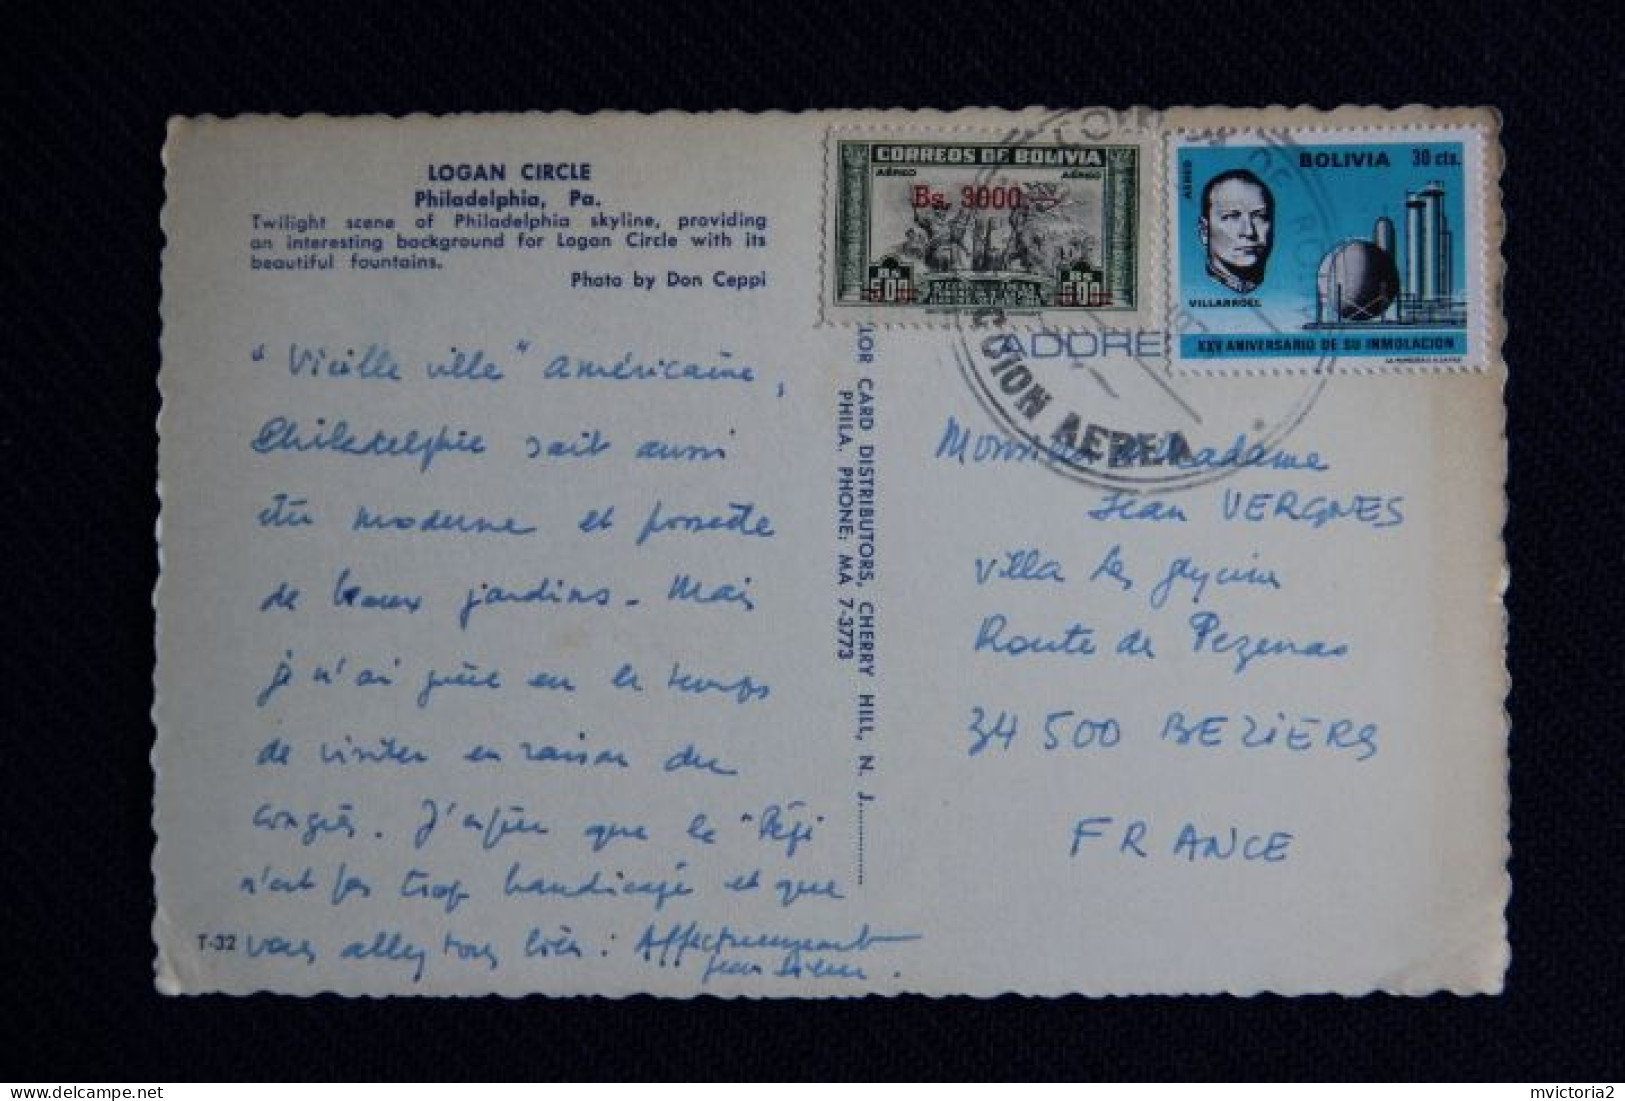 LOGAN CIRCLE
Philadelphia, Pa.
Twilight scene of Philadelphia skyline, providing
an interesting background for Logan Circle with its
beautiful fountains.
Photo by Don Ceppi
"Vieille ville" américaine,
Philadelphie sait aussi
être moderne et possède
de beaux jardins. Mais
je n'ai guère eu le temps
de visiter en raison du
congrès. J'espère que le "Pépé
n'est pas trop handicapé et que
vous allez tous bien. Affectueusement
Jean
T-32
LOR CARD DISTRIBUTORS, CHERRY HILL, N. J.
PHILA. PHONE: MA 7-3773
CORREOS DE BOLIVIA
AÉREO AÉREO
Bs. 3000.
Bs. 500 Bs. 500
AÉREO
BOLIVIA 30 cts.
VILLARROEL
XXV ANIVERSARIO DE SU INMOLACION
CCION AEREA
ADDRE
Monsieur et Madame
Jean VERGNES
Villa les glycines
Route de Pezenas
34 500 BEZIERS
FRANCE
mvictoria2